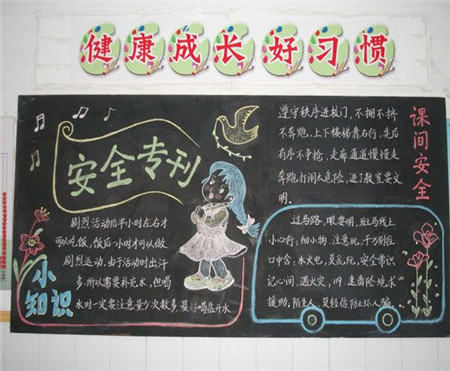 健康成长好习惯
安全专刊
小知识
剧烈活动后半小时左右才
可以吃饭,饭后一小时才可以做
剧烈运动,由于活动时出汗
多,所以需要补充水,但喝
水时一定要注意量少次数多,最好喝盐开水
课间安全
遵守秩序进校门,不拥不挤
不奔跑,上下楼梯靠右行,先后
有序不争抢,走廊通道慢慢走
奔跑打闹太危险,进了教室要文
明.
过马路,眼要明,斑马线上
小心行,细小物,注意玩,千万别往
口中含,水火电,莫乱玩,安全常识
记心间,遇火灾,119,走向险地求
援助,陌生人,莫轻信,防止坏人骗